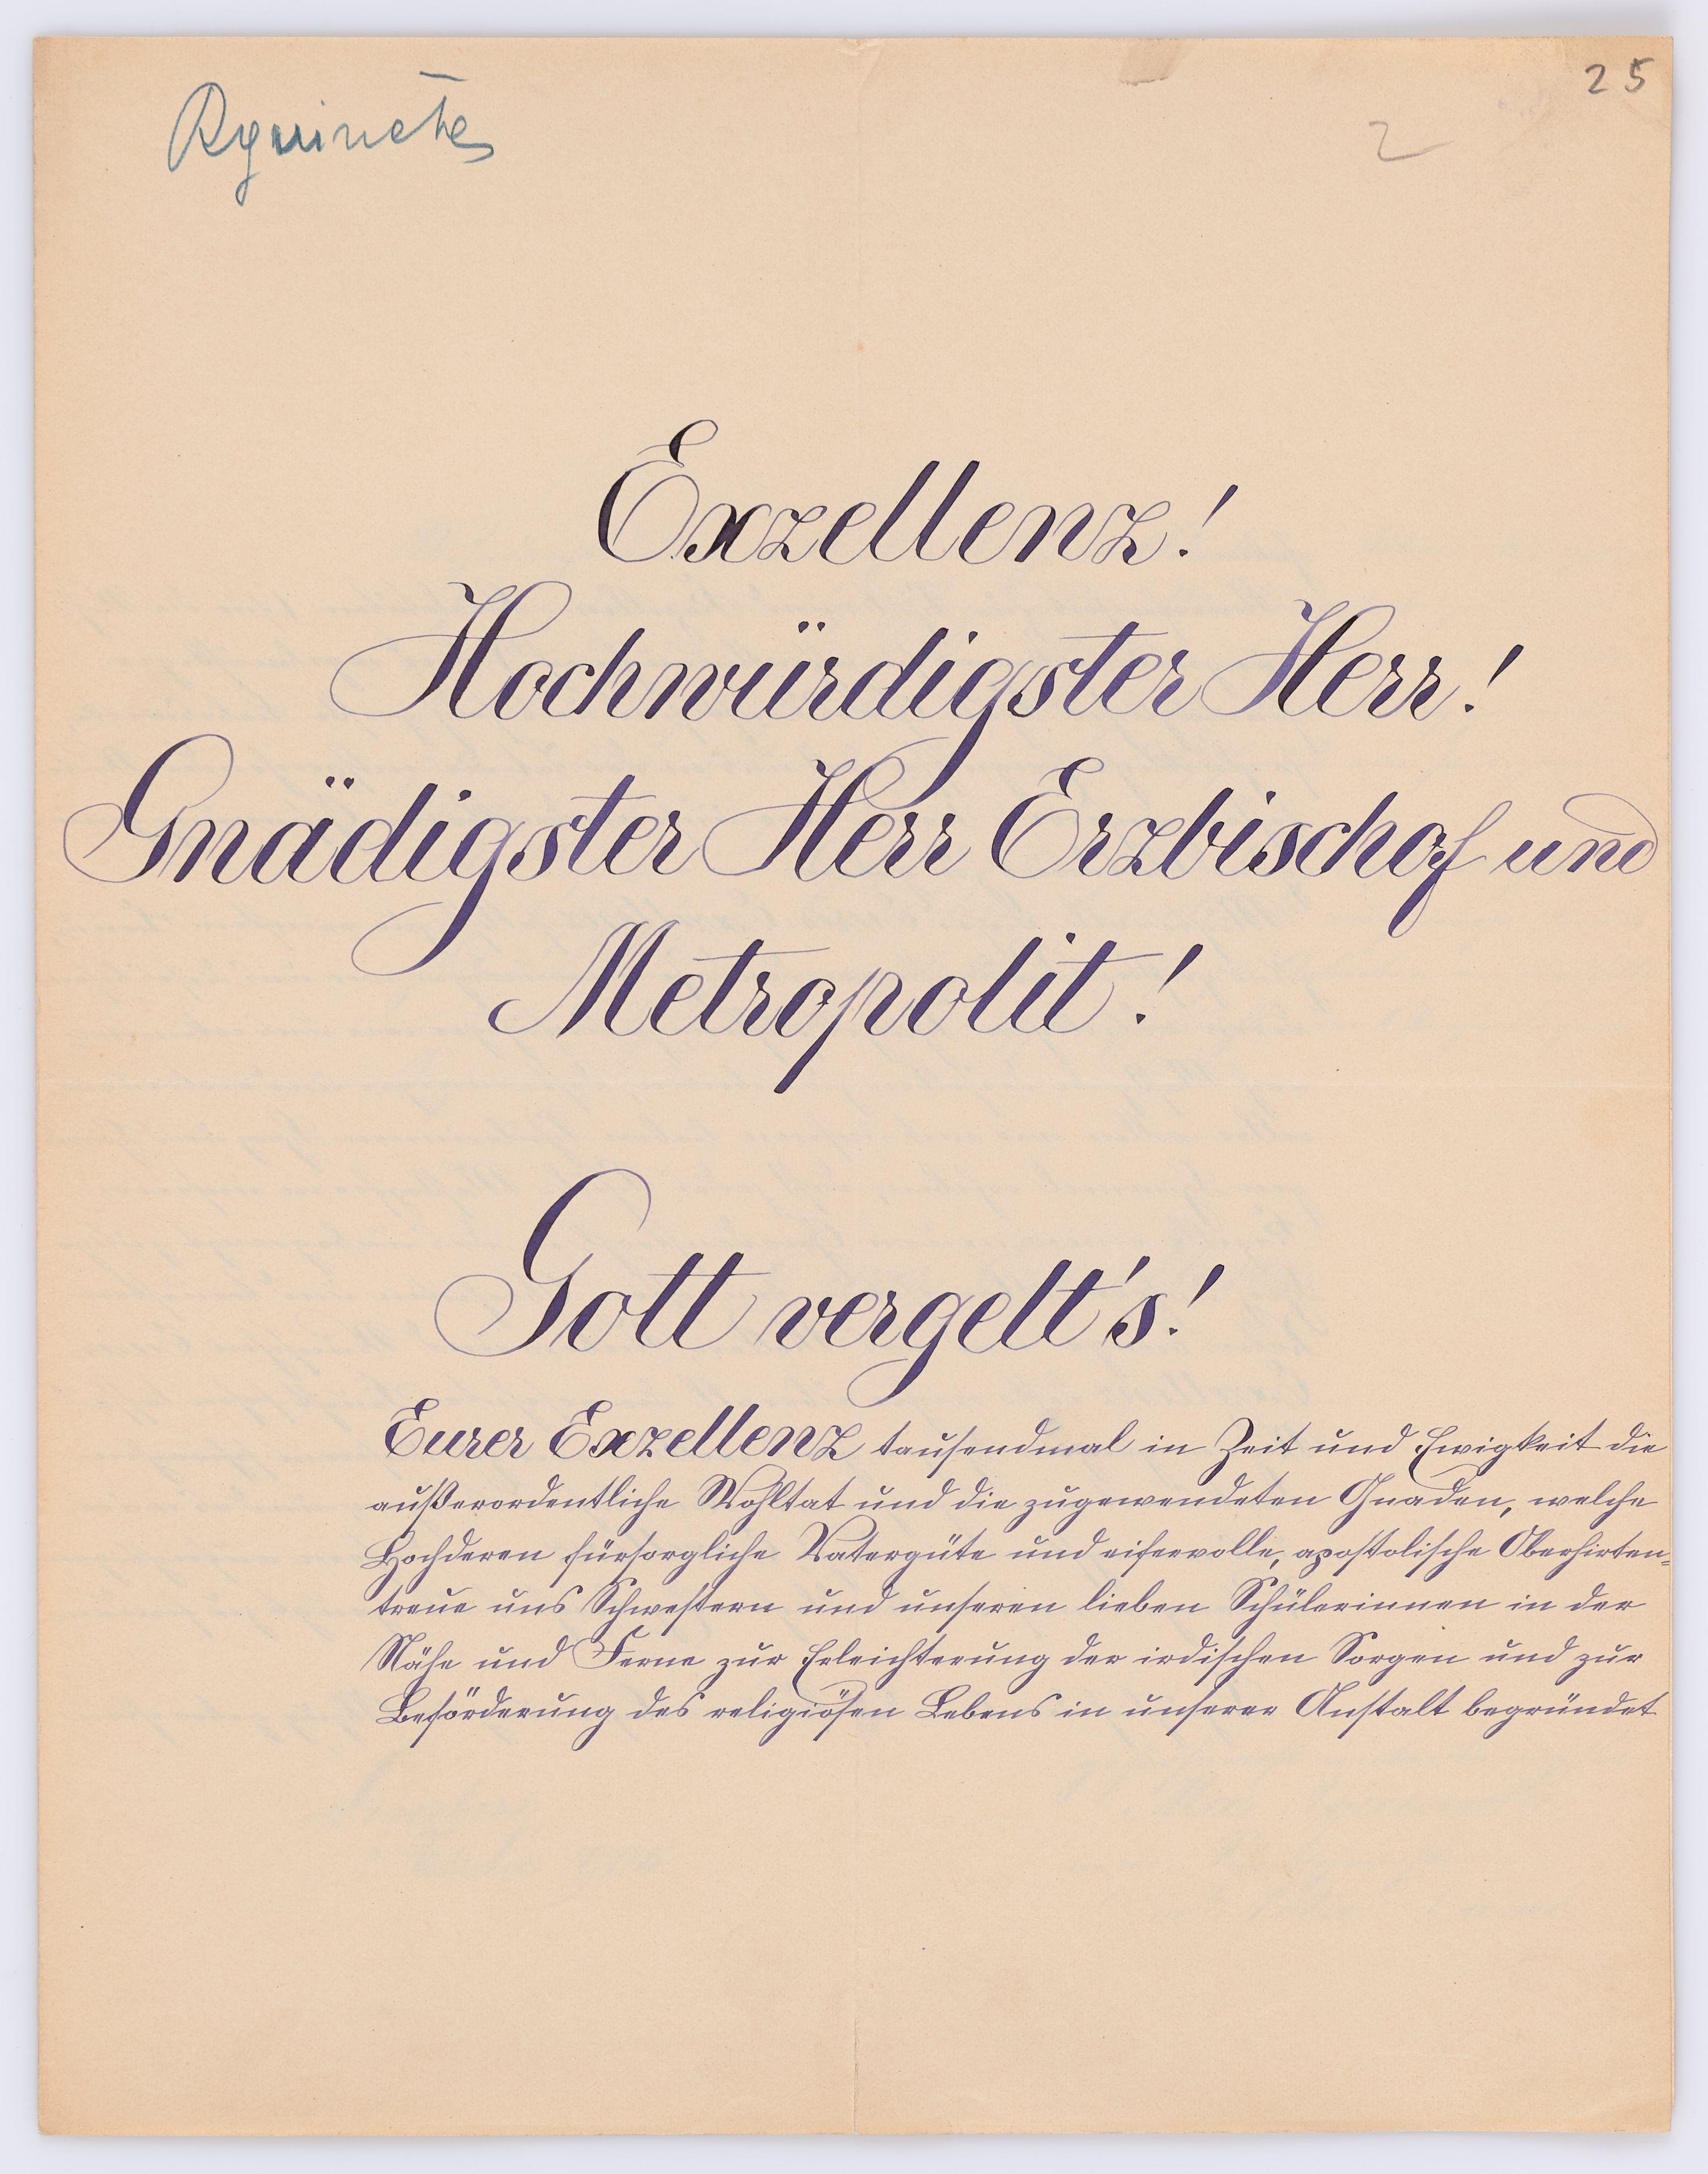 25
2
Exzellenz!
Hochwürdigster Herr!
Gnädigster Herr Erzbischof und
Metropolit!
Gott vergelt's!
Eurer Exzellenz tausendmal in Zeit und Ewigkeit die
außerordentliche Wohltat und die zugewendeten Gnaden, welche
Hochderen fürsorgliche Vatergüte und eifervolle, apostolische Oberhirten=
treue uns Schwestern und unseren lieben Schülerinnen in der
Nähe und Ferne zur Erleichterung der irdischen Sorgen und zur
Beförderung des religiösen Lebens in unserer Anstalt begründet